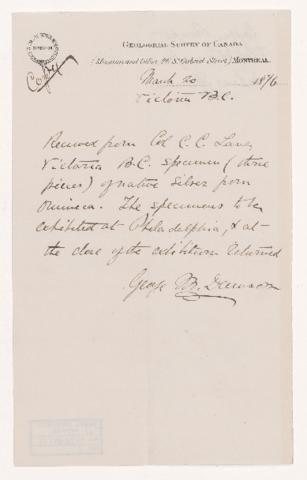 GEOLOGICAL SURVEY OF CANADA
(Museum and Office, 76 St. Gabriel Street) MONTREAL
Copy
March 20 1876
Victoria B.C.
Received from Col C. C. Lane,
Victoria B.C. specimen (three
pieces) of native Silver from
Omineca. The specimens to be
exhibited at Philadelphia, & at
the close of the exhibition returned
George M. Dawson